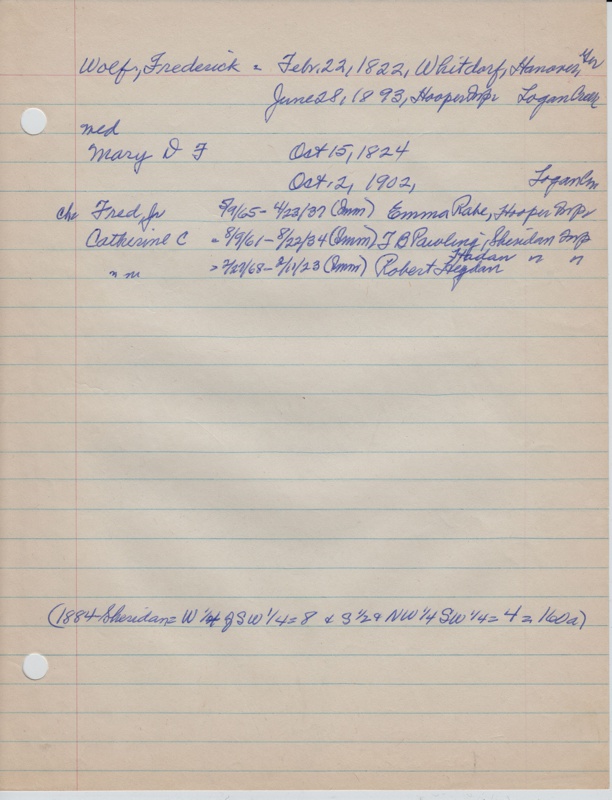 Wolf, Frederick = Febr. 22, 1822, Whitdorf, Hanover, Ger
June 28, 1893, Hooper Twp Logan Creek
med
Mary D F Oct 15, 1824
Oct. 2, 1902, Logan Cm
Chr Fred, Jr 5/9/65 - 4/23/37 (Omm) Emma Rabe, Hooper Twp
Catherine C = 8/9/61 - 8/22/34 (Omm) F B Pawling, Sheridan Twp
Hadan
" " = 2/27/68 - 2/11/23 (Omm) Robert Hegdan " "
(1884 Sheridan = W 1/2 of SW 1/4 = 8 & S 1/2 & NW 1/4 SW 1/4 = 4 = 160a)